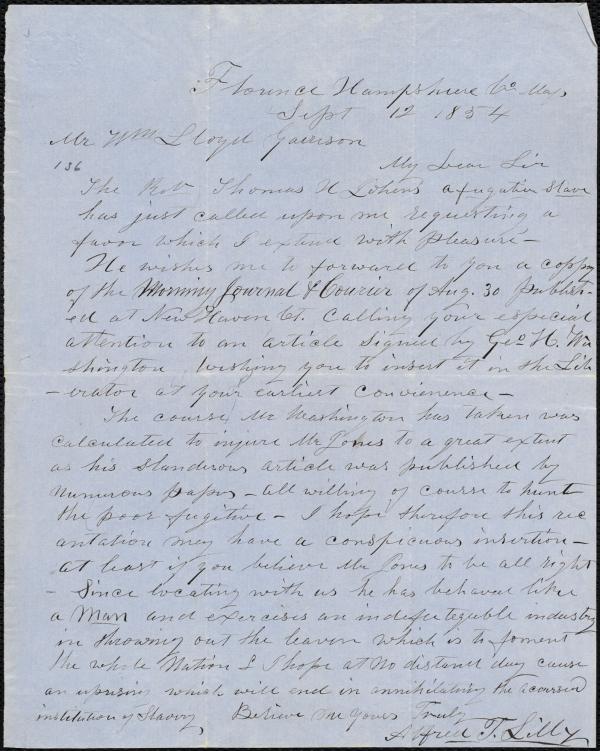 Florence Hampshire Co Mass
Sept 12 1854
Mr Wm Lloyd Garrison
136
My Dear Sir
The Rev Thomas H a fugative slave
has just called upon me requesting a
favor which I extend with pleasure -
He wishes me to forward to you a coppy
of the Morning Journal & Courier of Aug. 30 Publish-
ed at New Haven Ct. Calling your especial
attention to an article signed by Geo H. Wa
shington wishing you to insert it in the Lib
-erator at your earliest convienence -
The course Mr Washington has taken was
calculated to injure Mr Jones to a great extent
as his slanderous article was published by
numerous papers - all willing of course to hunt
the poor fugitive - I hope therefore this rec
antation may have a conspicuous insertion -
at least if you believe Mr Jones to be all right
- Since locating with us he has behaved like
a Man and exercises an indefatigable industry
in throwing out the leaven which is to foment
the whole Nation & I hope at no distant day cause
an uprising which will end in annihilating the accursed
institution of Slavery Believe me yours Truly
Alfred T. Lilly